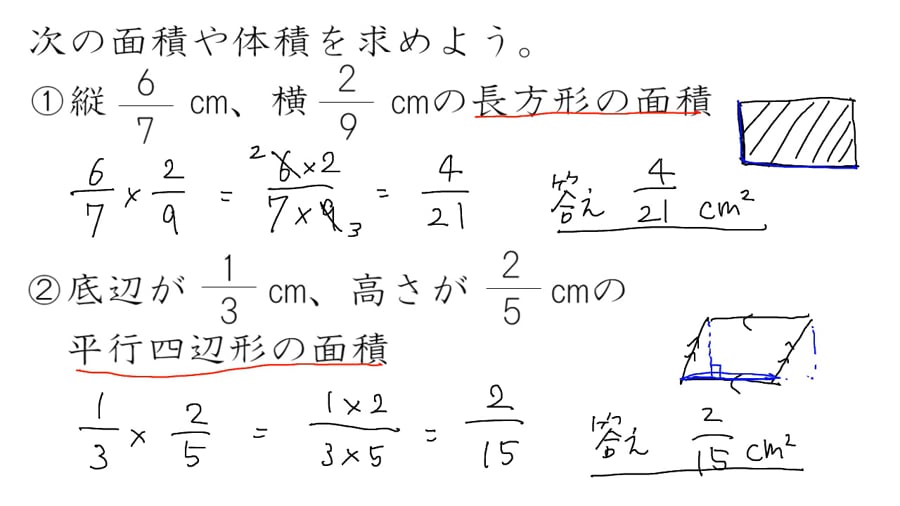 次の面積や体積を求めよう。
①縦 6/7 cm、横 2/9 cmの長方形の面積
6/7 × 2/9 = 6×2/7×9 = 4/21 答え 4/21 cm²
2
3
②底辺が 1/3 cm、高さが 2/5 cmの
平行四辺形の面積
1/3 × 2/5 = 1×2/3×5 = 2/15 答え 2/15 cm²